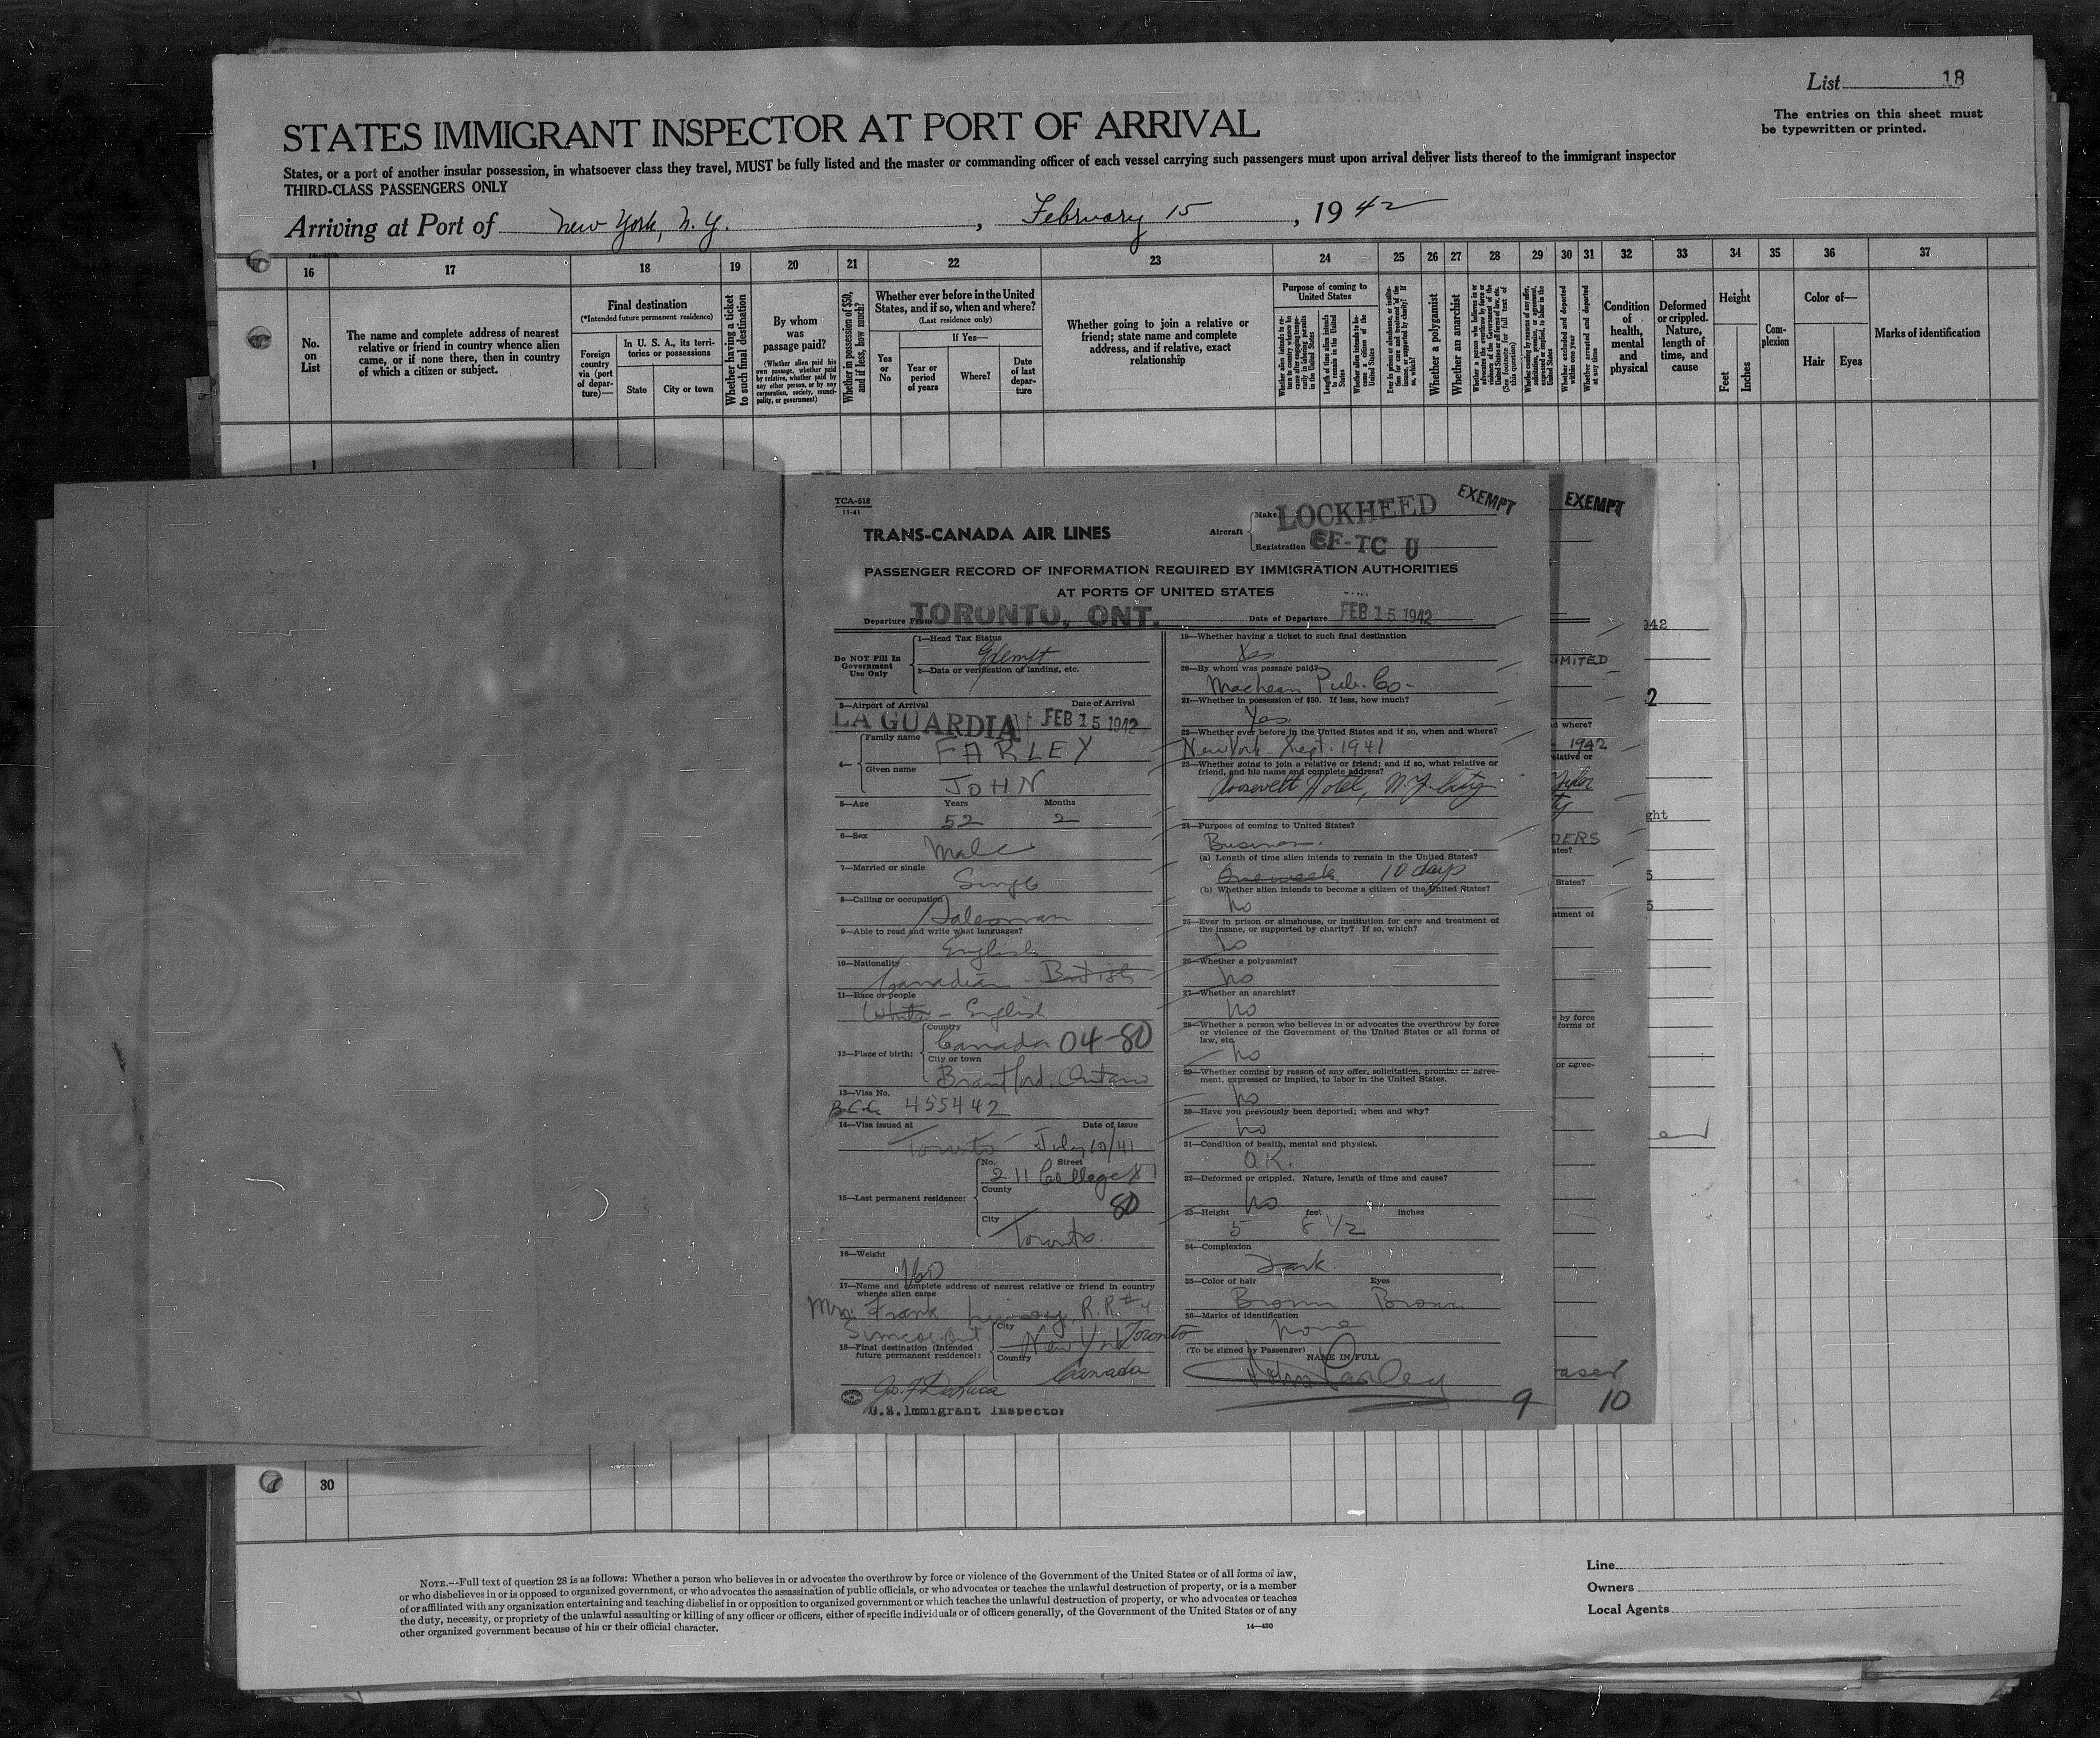 List 18
The entries on this sheet must
be typewritten or printed.
STATES IMMIGRANT INSPECTOR AT PORT OF ARRIVAL
States, or a port of another insular possession, in whatsoever class they travel, MUST be fully listed and the master or commanding officer of each vessel carrying such passengers must upon arrival deliver lists thereof to the immigrant inspector
THIRD-CLASS PASSENGERS ONLY
Arriving at Port of New York, N.Y. , February 15 , 19 42
16 17 18 19 20 21 22 23 24 25 26 27 28 29 30 31 32 33 34 35 36 37
No.
on
List
The name and complete address of nearest
relative or friend in country whence alien
came, or if none there, then in country
of which a citizen or subject.
Final destination
(*Intended future permanent residence)
Foreign
country
via (port
of depar-
ture)—
In U. S. A., its terri-
tories or possessions
State
City or town
Whether having a ticket
to such final destination
By whom
was
passage paid?
(Whether alien paid his
own passage, whether paid
by relative, whether paid by
any other person, or by any
corporation, society, munici-
pality, or government)
Whether in possession of $50,
and if less, how much?
Whether ever before in the United
States, and if so, when and where?
(Last residence only)
If Yes—
Yes
or
No
Year or
period
of years
Where?
Date
of last
depar-
ture
Whether going to join a relative or
friend; state name and complete
address, and if relative, exact
relationship
Purpose of coming to
United States
Length of time alien intends
to remain in the United
States
Whether alien intends to be-
come a citizen of the
United States
Whether a polygamist
Whether an anarchist
Whether excluded and deported
within one year
Whether arrested and deported
at any time
Condition
of
health,
mental
and
physical
Deformed
or crippled.
Nature,
length of
time, and
cause
Height
Feet
Inches
Com-
plexion
Color of—
Hair
Eyes
Marks of identification
1
TCA-518
11-41
TRANS-CANADA AIR LINES
Aircraft
Make LOCKHEED
Registration CF-TC U
EXEMPT
EXEMPT
PASSENGER RECORD OF INFORMATION REQUIRED BY IMMIGRATION AUTHORITIES
AT PORTS OF UNITED STATES
Departure From TORONTO, ONT.
Date of Departure FEB 15 1942
Do NOT Fill In
Government
Use Only
1—Head Tax Status
Exempt
2—Data or verification of landing, etc.
3—Airport of Arrival Date of Arrival
LA GUARDIA FEB 15 1942
4—
Family name
FARLEY
Given name
JOHN
5—Age Years Months
52 2
6—Sex
Male
7—Married or single
Single
8—Calling or occupation
Salesman
9—Able to read and write what languages?
English
10—Nationality
Canadian - British
11—Race or people
White - English
12—Place of birth:
Country
Canada 04-80
City or town
Brantford, Ontario
13—Visa No.
B.C.C. 455442
14—Visa issued at Date of issue
Toronto July 10/41
15—Last permanent residence:
No. Street
211 College St
County
80
City
Toronto.
16—Weight
160
17—Name and complete address of nearest relative or friend in country
whence alien came
Mrs. Frank R.R.#4
Simcoe, Ont
18—Final destination (Intended
future permanent residence):
City
New York Toronto
Country
Canada
U.S. Immigrant Inspector
19—Whether having a ticket to such final destination
Yes
20—By whom was passage paid?
Maclean Pub. Co-
21—Whether in possession of $50. If less, how much?
Yes.
22—Whether ever before in the United States and if so, when and where?
New York Sept. 1941
23—Whether going to join a relative or friend; and if so, what relative or
friend, and his name and complete address?
Roosevelt Hotel, N.Y. City
24—Purpose of coming to United States?
Business.
(a) Length of time alien intends to remain in the United States?
One week 10 days
(b) Whether alien intends to become a citizen of the United States?
No
25—Ever in prison or almshouse, or institution for care and treatment of
the insane, or supported by charity? If so, which?
No
26—Whether a polygamist?
No
27—Whether an anarchist?
No
28—Whether a person who believes in or advocates the overthrow by force
or violence of the Government of the United States or all forms of
law, etc.
No
29—Whether coming by reason of any offer, solicitation, promise or agree-
ment, expressed or implied, to labor in the United States.
No
30—Have you previously been deported; when and why?
No
31—Condition of health, mental and physical.
O.K.
32—Deformed or crippled. Nature, length of time and cause?
No
33—Height feet inches
5 8 1/2
34—Complexion
Dark
35—Color of hair Eyes
Brown Brown
36—Marks of identification
None
(To be signed by Passenger)
NAME IN FULL
John Farley
9
10
30
NOTE.—Full text of question 28 is as follows: Whether a person who believes in or advocates the overthrow by force or violence of the Government of the United States or of all forms of law,
or who disbelieves in or is opposed to organized government, or who advocates the assassination of public officials, or who advocates or teaches the unlawful destruction of property, or is a member
of or affiliated with any organization entertaining and teaching disbelief in or opposition to organized government or which teaches the unlawful destruction of property, or who advocates or teaches
the duty, necessity, or propriety of the unlawful assaulting or killing of any officer or officers, either of specific individuals or of officers generally, of the Government of the United States or of any
other organized government because of his or their official character.
14—430
Line
Owners
Local Agents